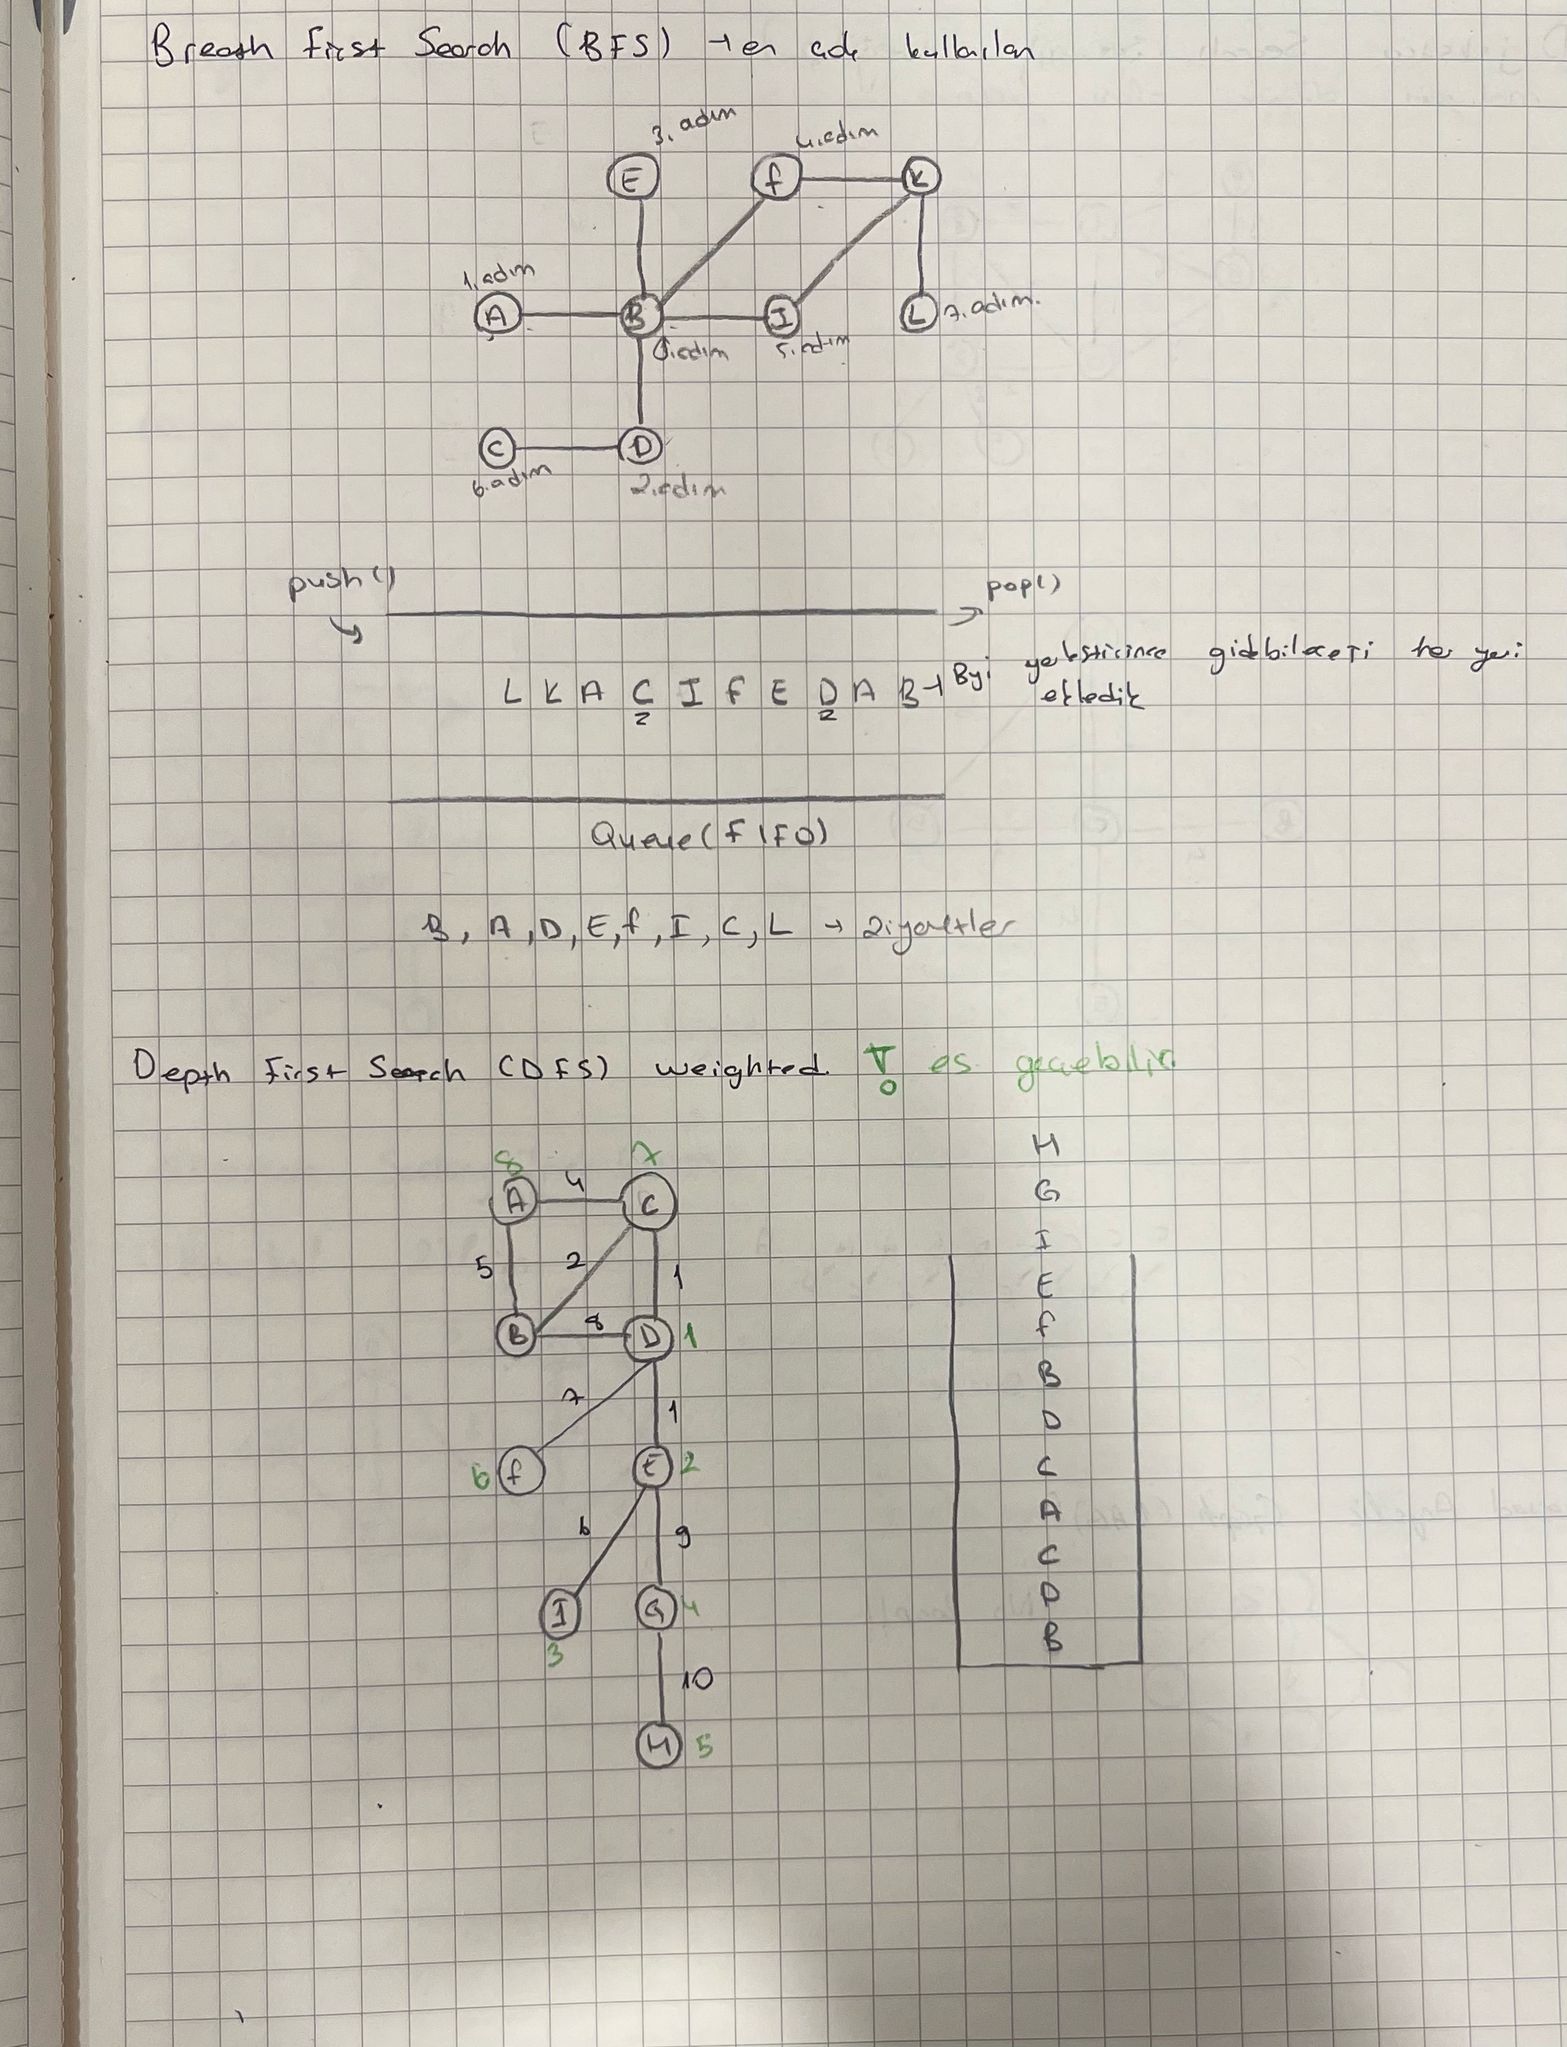 Breath First Search (BFS) → en çok kullanılan
3. adım
4. adım
E f K
1. adım
A B I L 7. adım.
0. adım 5. adım
C D
6. adım 2. adım
push() pop()
L K A C I F E D A B → B yi yerleştirince gidebileceği her yeri
2 2 ekledik
Queue (FIFO)
B, A, D, E, f, I, C, L → ziyaretler
Depth First Search (DFS) weighted ! es geçebilir
8 7
A 4 C
5 2 1
B 8 D 1
7 1
6 f E 2
6 9
I G 4
3
10
H 5
H
G
I
E
f
B
D
C
A
C
D
B